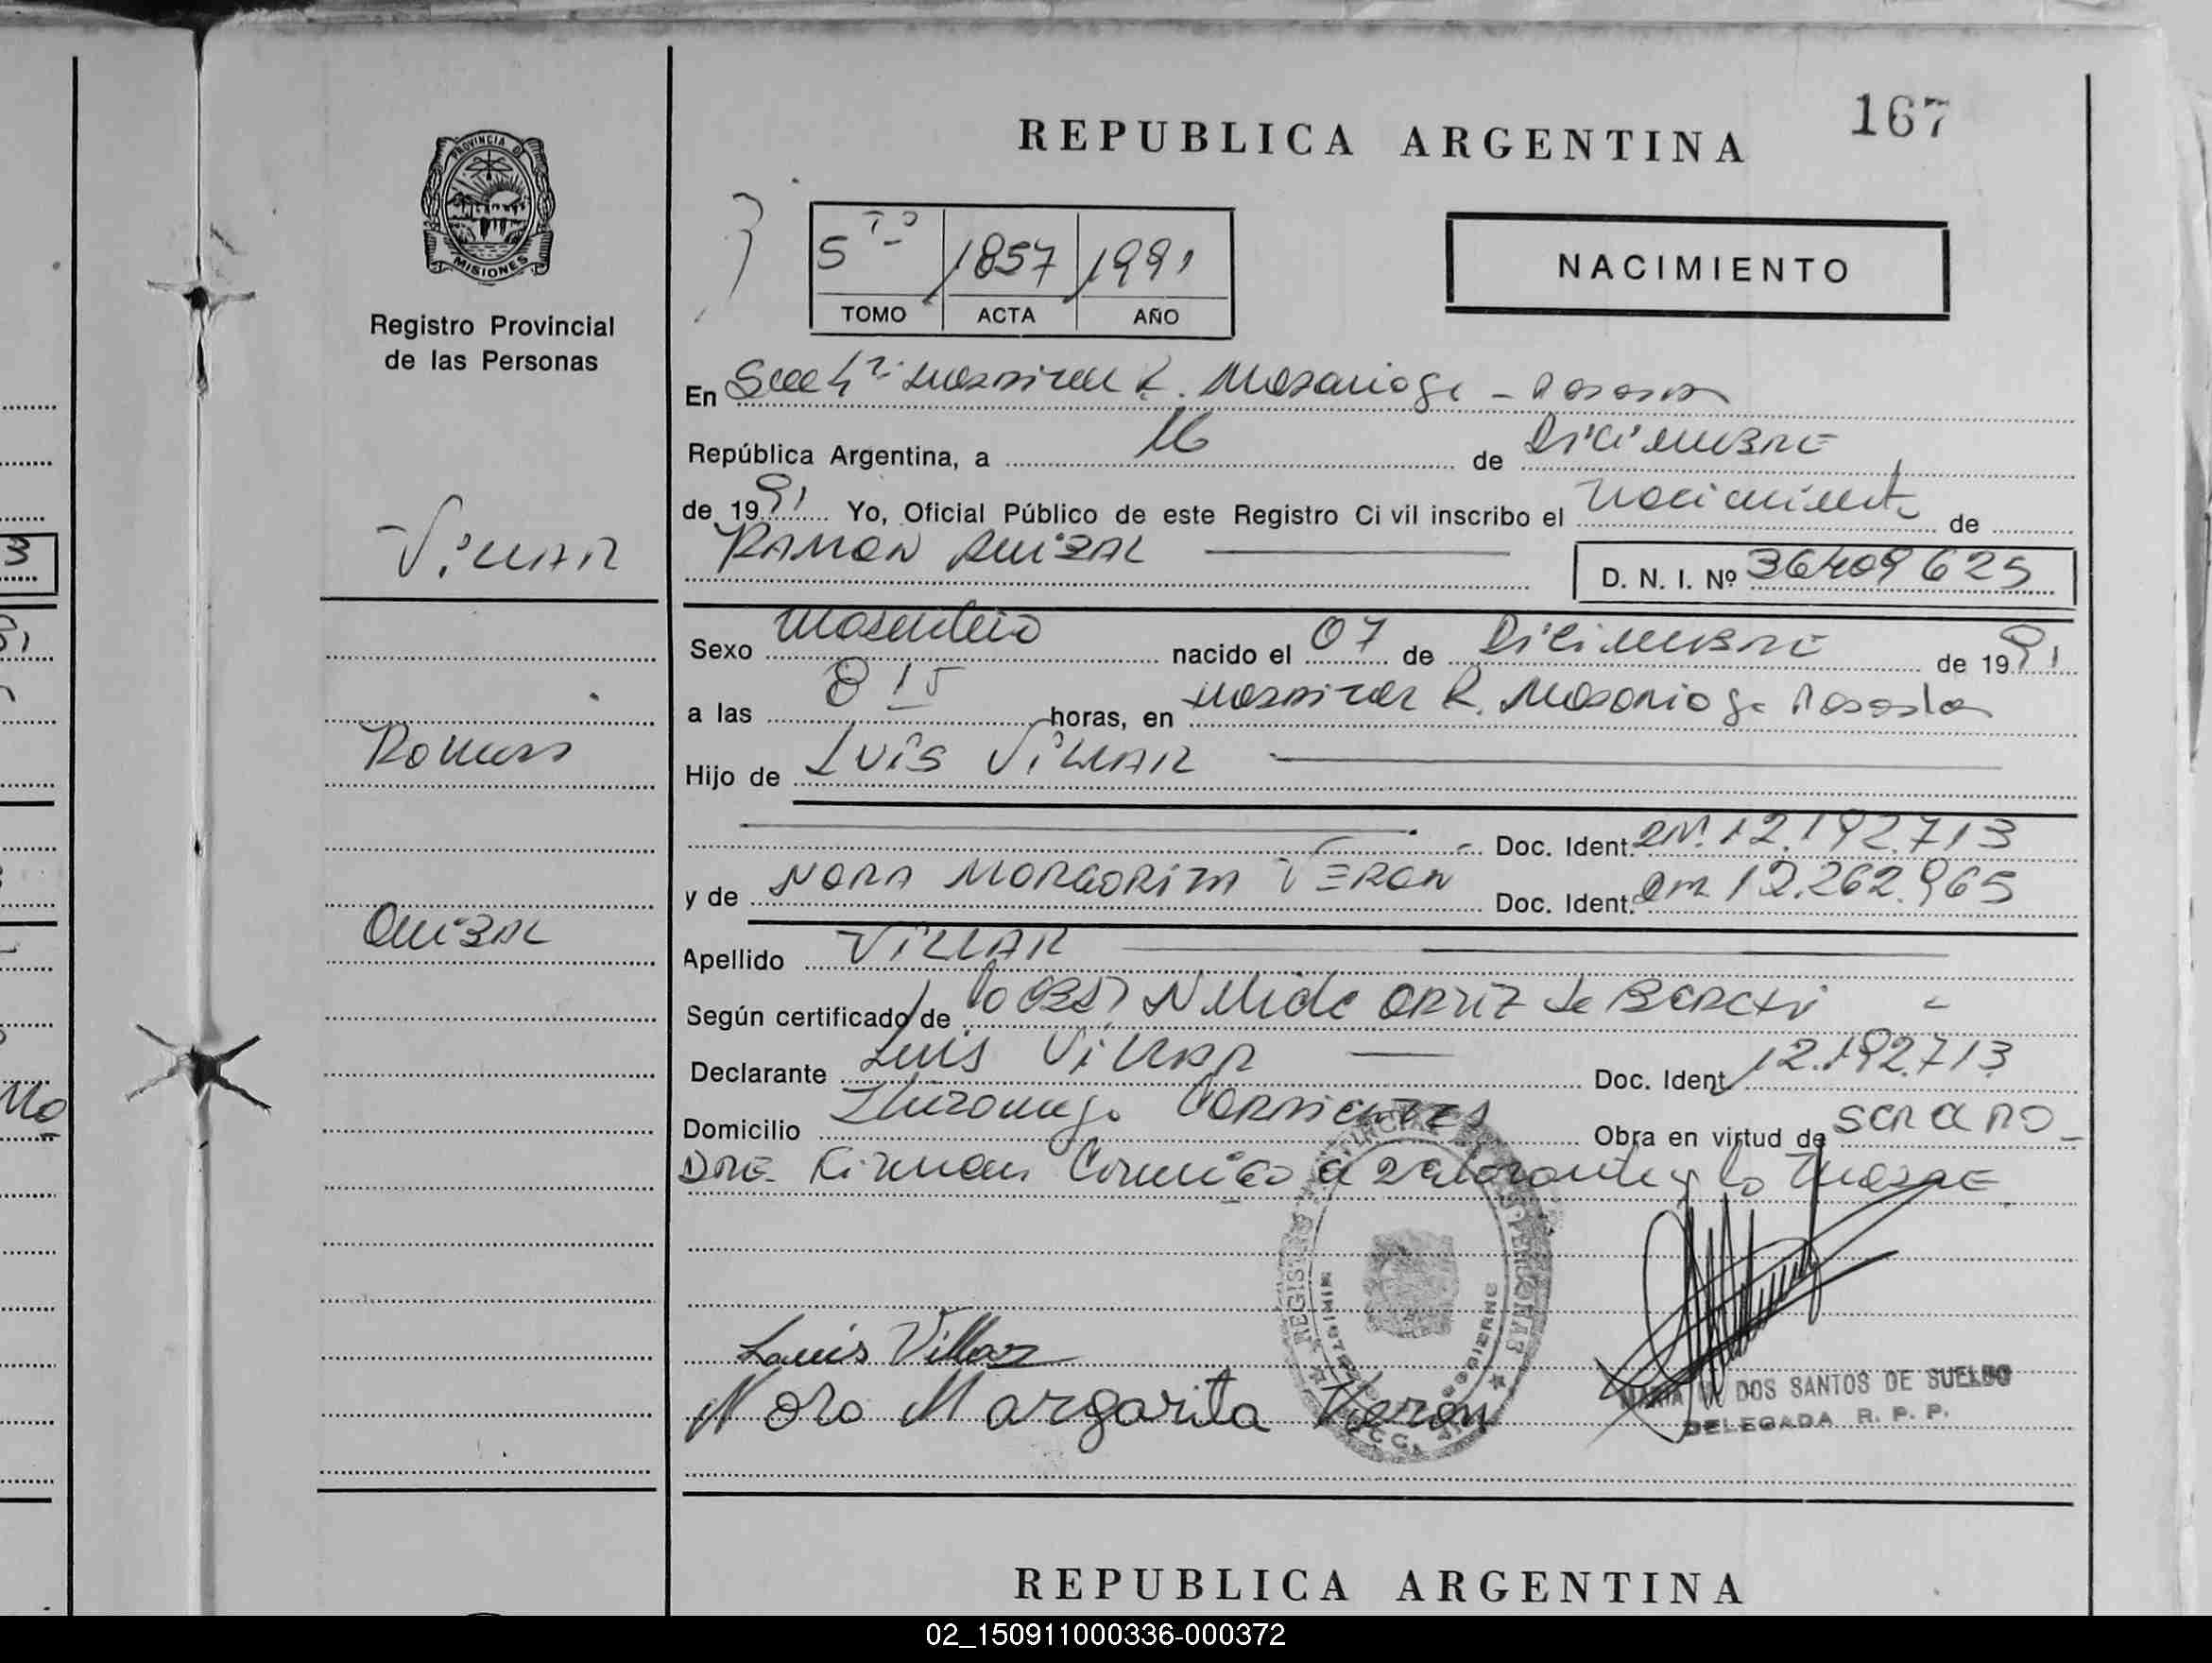 167
REPUBLICA ARGENTINA
PROVINCIA DE
MISIONES
Registro Provincial
de las Personas
5 TO 1857 1991
TOMO ACTA AÑO
NACIMIENTO
En Secc 4ta Hospital R. Madariaga - Posadas
República Argentina, a 16 de Diciembre
de 1991 Yo, Oficial Público de este Registro Civil inscribo el Nacimiento de
RAMON ANIBAL D. N. I. Nº 36409625
VILLAR
Sexo Masculino nacido el 07 de Diciembre de 1991
a las 8 15 horas, en Hospital R. Madariaga Posadas
Ramon
Hijo de LUIS VILLAR
Doc. Ident. 12.192.713
y de NORA MARGARITA VERON Doc. Ident. 12.262.965
ANIBAL
Apellido VILLAR
Según certificado de Nelida ORTIZ de
Declarante Luis VILLAR Doc. Ident 12.192.713
Domicilio Ituzaingo Corrientes Obra en virtud de ser el PA-
DRE. Firman Conmigo el declarante y la MADRE
Luis Villar
Nora Margarita Veron
DOS SANTOS DE SUELDO
DELEGADA R. P. P.
REPUBLICA ARGENTINA
02_150911000336-000372